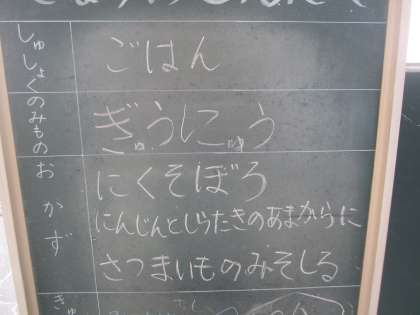 しゅしょく
ごはん
のみもの
ぎゅうにゅう
おかず
にくそぼろ
にんじんとしらたきのあまからに
さつまいものみそしる